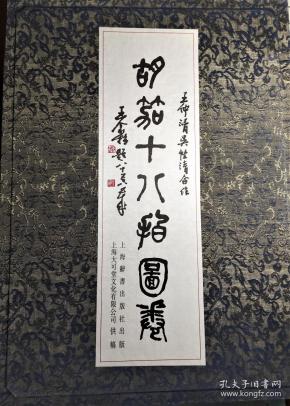 王仲清吴性清合作
胡笳十八拍圖卷
王个簃题
上海辭書出版社出版
上海大可堂文化有限公司 供稿
孔夫子旧书网
www.kongfz.com